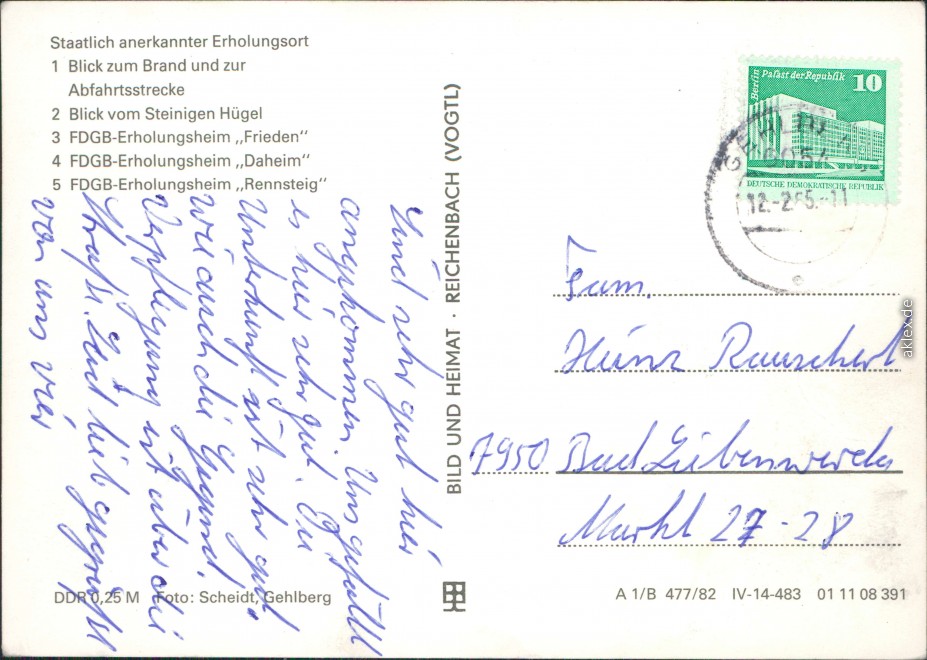 Staatlich anerkannter Erholungsort
1 Blick zum Brand und zur
Abfahrtsstrecke
2 Blick vom Steinigen Hügel
3 FDGB-Erholungsheim „Frieden"
4 FDGB-Erholungsheim „Daheim"
5 FDGB-Erholungsheim „Rennsteig"
Sind sehr gut hier
angekommen. Uns gefällt
es hier sehr gut. Die
Unterkunft ist sehr gut
wie auch die Gegend.
Verpflegung ist über die
Straße. Seid lieb gegrüßt
von uns vier
BILD UND HEIMAT · REICHENBACH (VOGTL)
Berlin Palast der Republik 10
DEUTSCHE DEMOKRATISCHE REPUBLIK
GEHLBERG
6054
12.-2.85.-11
Fam.
Heinz Rauschert
7950 Bad Liebenwerda
Markt 27-28
DDR 0,25 M Foto: Scheidt, Gehlberg
A 1/B 477/82 IV-14-483 01 11 08 391
aklex.de